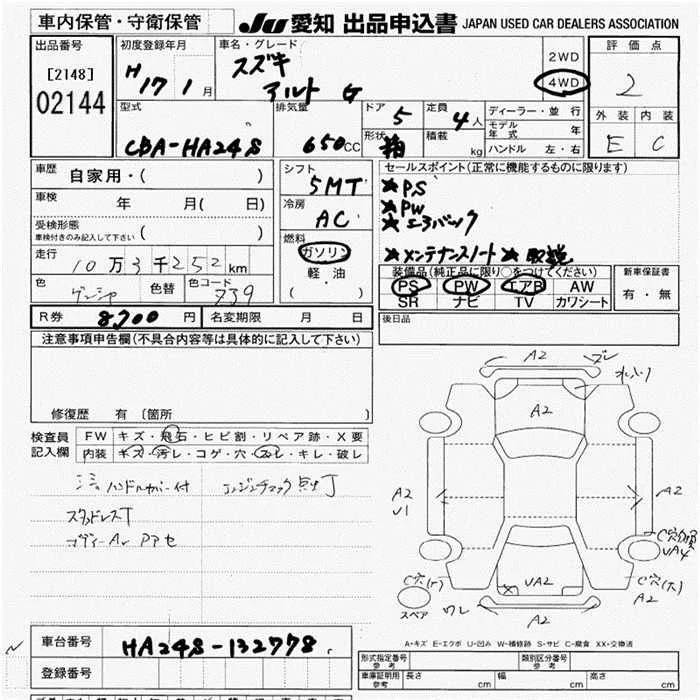 車内保管・守衛保管
JU 愛知 出品申込書 JAPAN USED CAR DEALERS ASSOCIATION
出品番号
[2148]
02144
初度登録年月
H 17 1 月
車名・グレード
スズキ
アルト G
2WD
4WD
評価点
2
外装 内装
E C
型式
CBA-HA24S
排気量
650 CC
ドア 5
形状 箱
定員 4 人
積載 kg
ディーラー・並行
モデル年式 年
ハンドル 左・右
車歴 自家用・( )
車検 年 月( 日)
受検形態
車検付きのみ記入して下さい ( )
走行 10万3千252km
色 色替 色コード Z39
R券 8,700 円 名変期限 月 日
シフト
5MT
冷房
AC
燃料
ガソリン
軽・油
( ・ )
セールスポイント(正常に機能するものに限ります)
★PS
★PW
★エアバック
★メンテナンスノート ★取説
装備品(純正品に限り○をつけてください)
PS PW エアB AW
SR ナビ TV カワシート
新車保証書
有・無
後日品
注意事項申告欄(不具合内容等は具体的に記入して下さい)
修復歴 有 〔箇所 〕
検査員記入欄
FW キズ・飛石・ヒビ割・リペア跡・X要
内装 キズ・汚レ・コゲ・穴・スレ・キレ・破レ
ハンドルカバー付 エンジンチェック点灯
スタッドレスT
A2
A2
A2
V1
A2
UA2
A2
A2
スペア
A-キズ E-エクボ U-凹み W-補修跡 S-サビ C-腐食 XX-交換済
車台番号 HA24S-132778
登録番号
形式指定番号参考
類別区分番号参考
車庫証明用参考 長さ cm 幅 cm 高さ cm